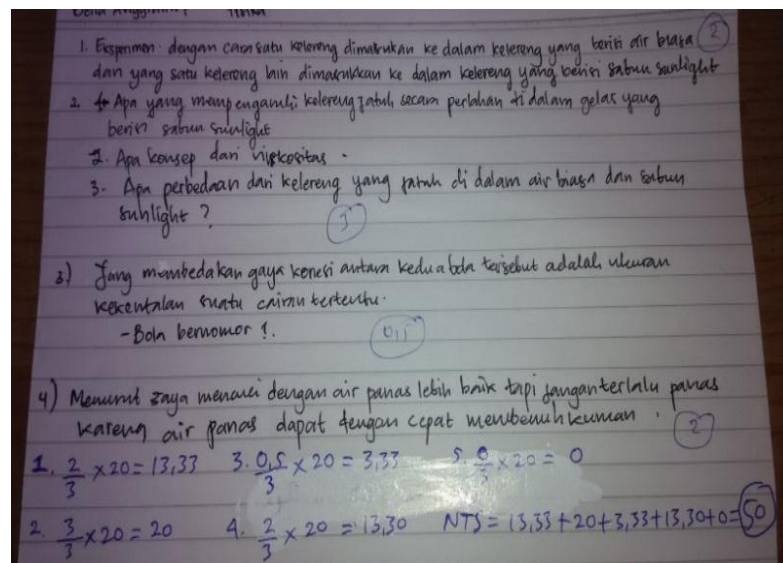 1. Eksperimen dengan cara satu kelereng dimasukan ke dalam kelereng yang berisi air biasa 2
dan yang satu kelereng lain dimasukkan ke dalam kelereng yang berisi sabun sunlight
2. Apa yang mempengaruhi kelereng jatuh secara perlahan di dalam gelas yang
berisi sabun sunlight
2. Apa konsep dari viskositas.
3. Apa perbedaan dari kelereng yang jatuh di dalam air biasa dan sabun
sunlight ?
3
3) Yang membedakan gaya antara kedua bola tersebut adalah ukuran
kekentalan suatu cairan tertentu.
- Bola bernomor 1.
4) Menurut saya mencuci dengan air panas lebih baik tapi jangan terlalu panas
karena air panas dapat dengan cepat membenuh kuman. 2
1. 2/3 x20 = 13,33 3. 0,5/3 x 20 = 3,33 5. 0/3 x 20 = 0
2. 3/3 x 20 = 20 4. 2/3 x 20 = 13,30 NTS = 13,33+20+3,33+13,30+0=50